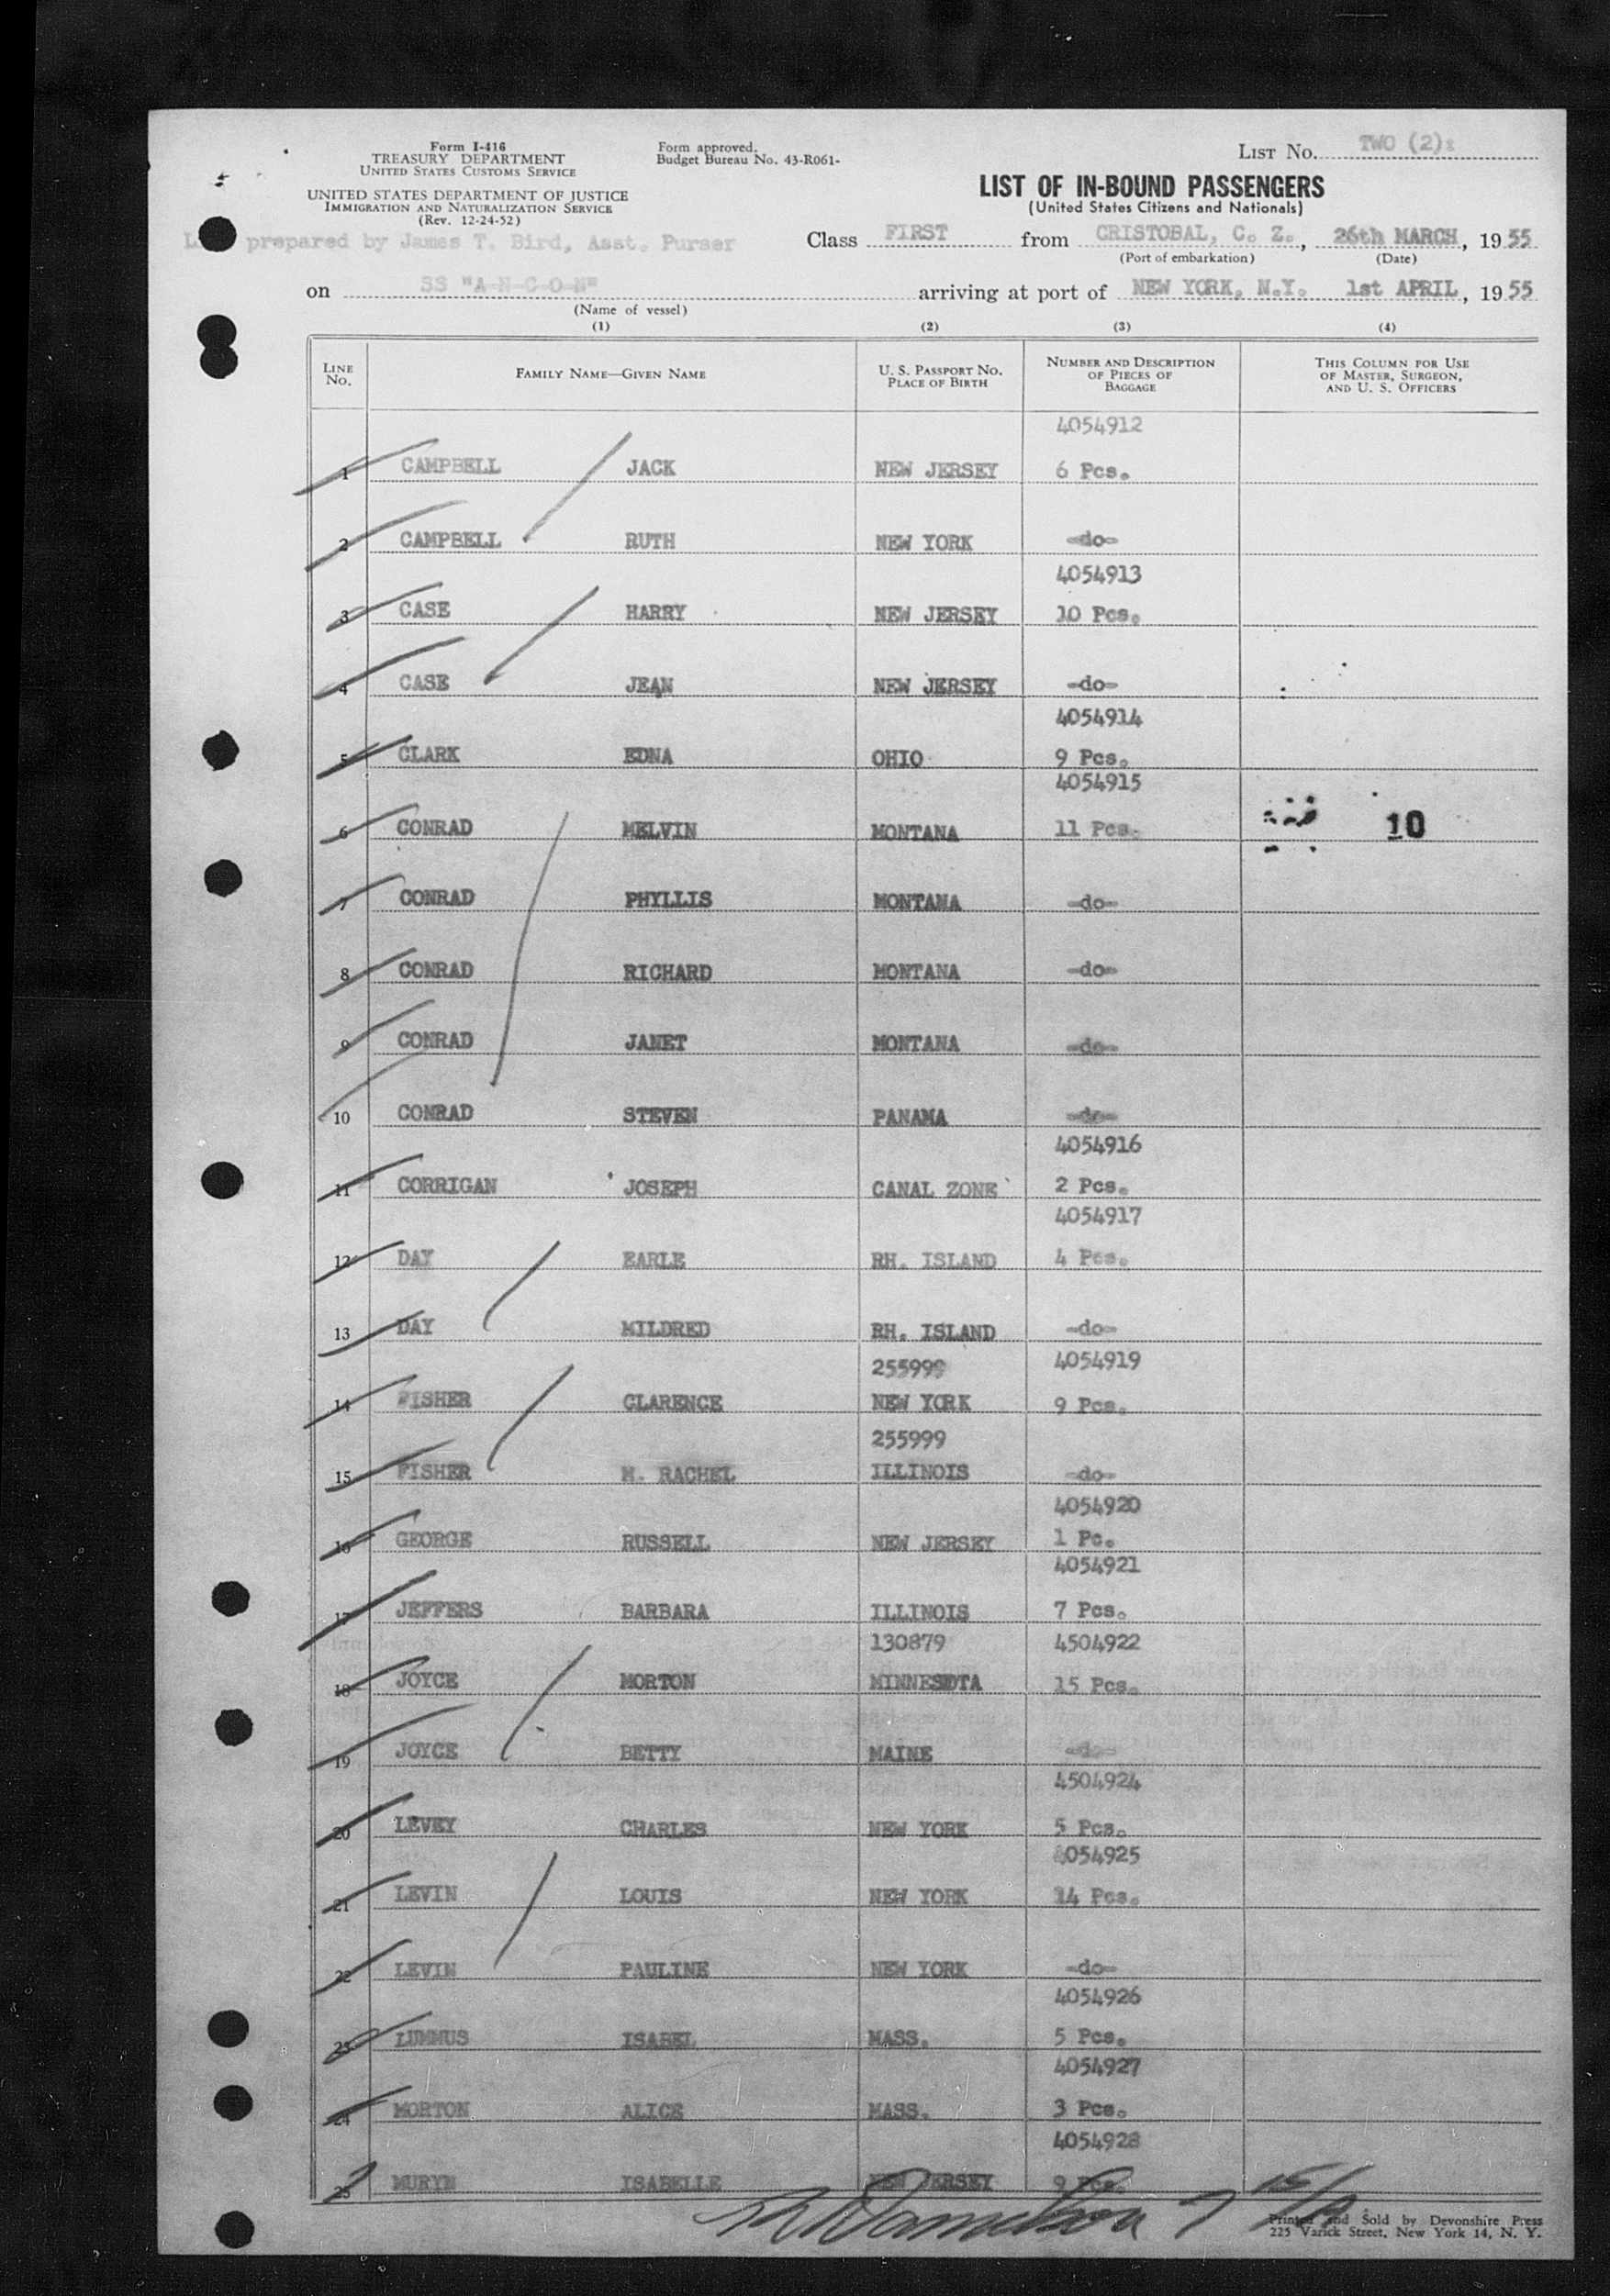 Form I-416
TREASURY DEPARTMENT
UNITED STATES CUSTOMS SERVICE
UNITED STATES DEPARTMENT OF JUSTICE
IMMIGRATION AND NATURALIZATION SERVICE
(Rev. 12-24-52)
Form approved.
Budget Bureau No. 43-R061-
LIST NO. TWO (2):
LIST OF IN-BOUND PASSENGERS
(United States Citizens and Nationals)
prepared by James T. Bird, Asst. Purser
Class FIRST from CRISTOBAL, C. Z., 26th MARCH, 1955
(Port of embarkation) (Date)
on SS "A-N-C-O-N" arriving at port of NEW YORK, N.Y. 1st APRIL, 1955
(Name of vessel)
(1) (2) (3) (4)
LINE NO. FAMILY NAME—GIVEN NAME U. S. PASSPORT NO. PLACE OF BIRTH NUMBER AND DESCRIPTION OF PIECES OF BAGGAGE THIS COLUMN FOR USE OF MASTER, SURGEON, AND U. S. OFFICERS
4054912
1 CAMPBELL JACK NEW JERSEY 6 Pcs.
2 CAMPBELL RUTH NEW YORK -do-
4054913
3 CASE HARRY NEW JERSEY 10 Pcs.
4 CASE JEAN NEW JERSEY -do-
4054914
5 CLARK EDNA OHIO 9 Pcs.
4054915
6 CONRAD MELVIN MONTANA 11 Pcs. 10
7 CONRAD PHYLLIS MONTANA -do-
8 CONRAD RICHARD MONTANA -do-
9 CONRAD JANET MONTANA -do-
10 CONRAD STEVEN PANAMA -do-
4054916
11 CORRIGAN JOSEPH CANAL ZONE 2 Pcs.
4054917
12 DAY EARLE RH. ISLAND 4 Pcs.
13 DAY MILDRED RH. ISLAND -do-
255999 4054919
14 FISHER CLARENCE NEW YORK 9 Pcs.
255999
15 FISHER M. RACHEL ILLINOIS -do-
4054920
16 GEORGE RUSSELL NEW JERSEY 1 Pc.
4054921
17 JEFFERS BARBARA ILLINOIS 7 Pcs.
130879 4504922
18 JOYCE MORTON MINNESOTA 15 Pcs.
19 JOYCE BETTY MAINE -do-
4504924
20 LEVEY CHARLES NEW YORK 5 Pcs.
4054925
21 LEVIN LOUIS NEW YORK 14 Pcs.
22 LEVIN PAULINE NEW YORK -do-
4054926
23 LUMMUS ISABEL MASS. 5 Pcs.
4054927
24 MORTON ALICE MASS. 3 Pcs.
4054928
25 MURYN ISABELLE NEW JERSEY 9 Pcs.
Printed and Sold by Devonshire Press
225 Varick Street, New York 14, N. Y.